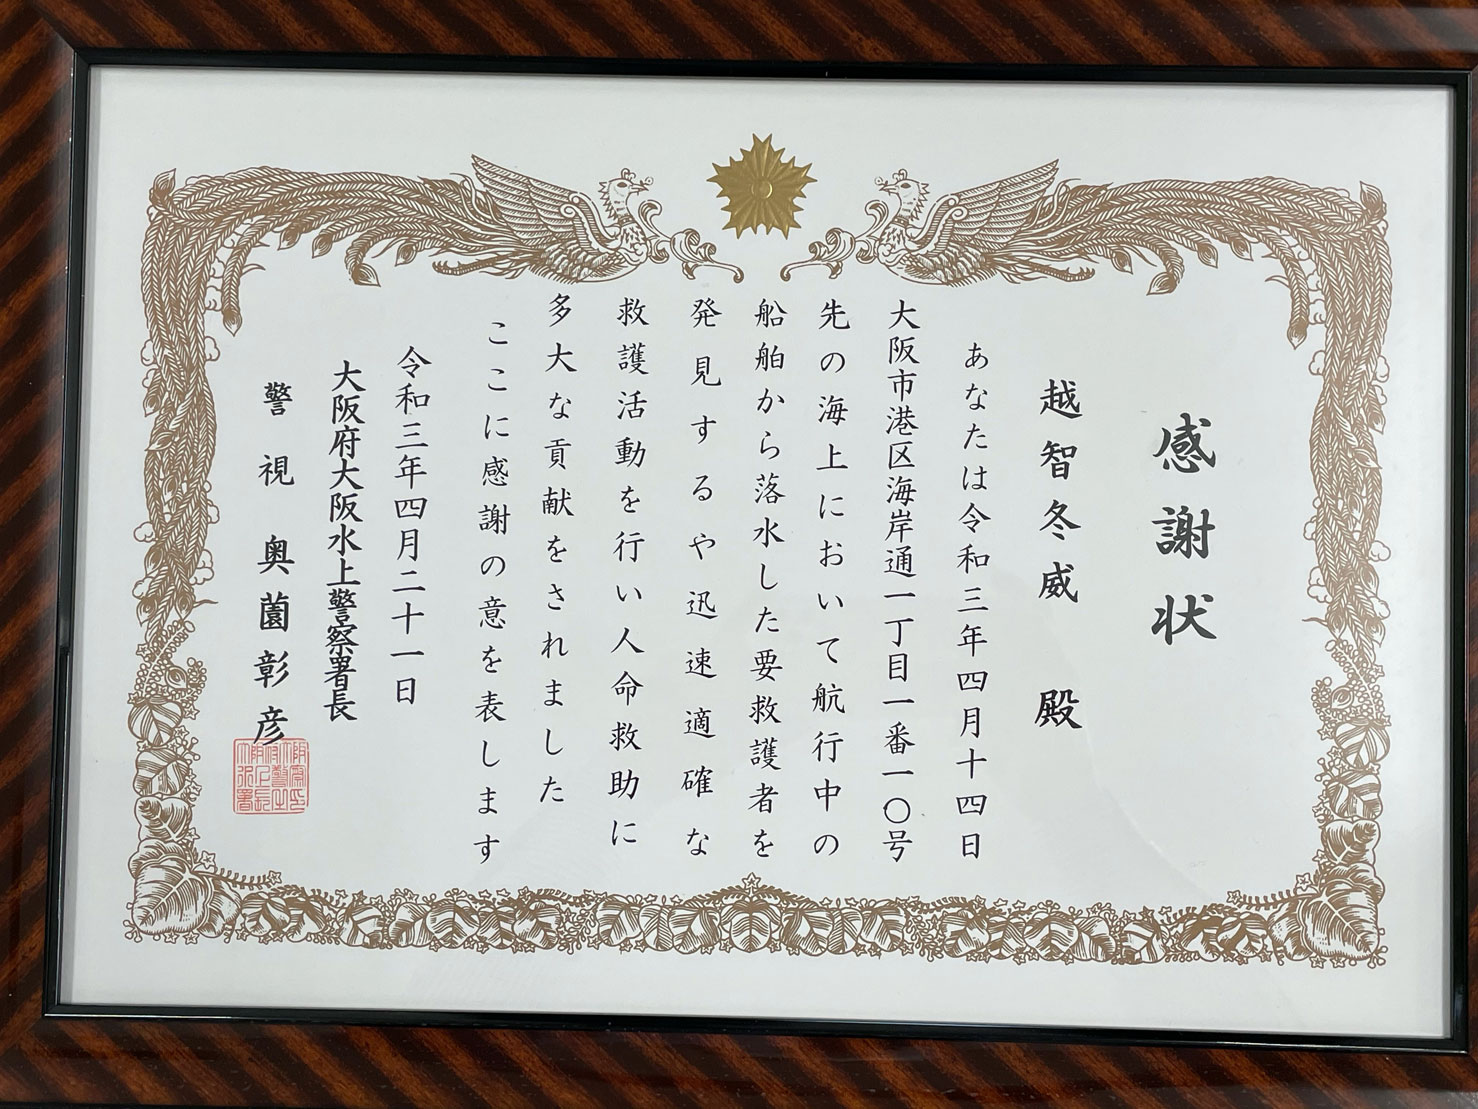 感謝状
越智冬威 殿
あなたは令和三年四月十四日
大阪市港区海岸通一丁目一番一〇号
先の海上において航行中の
船舶から落水した要救護者を
発見するや迅速適確な
救護活動を行い人命救助に
多大な貢献をされました
ここに感謝の意を表します
令和三年四月二十一日
大阪府大阪水上警察署長
警視 奥薗彰彦